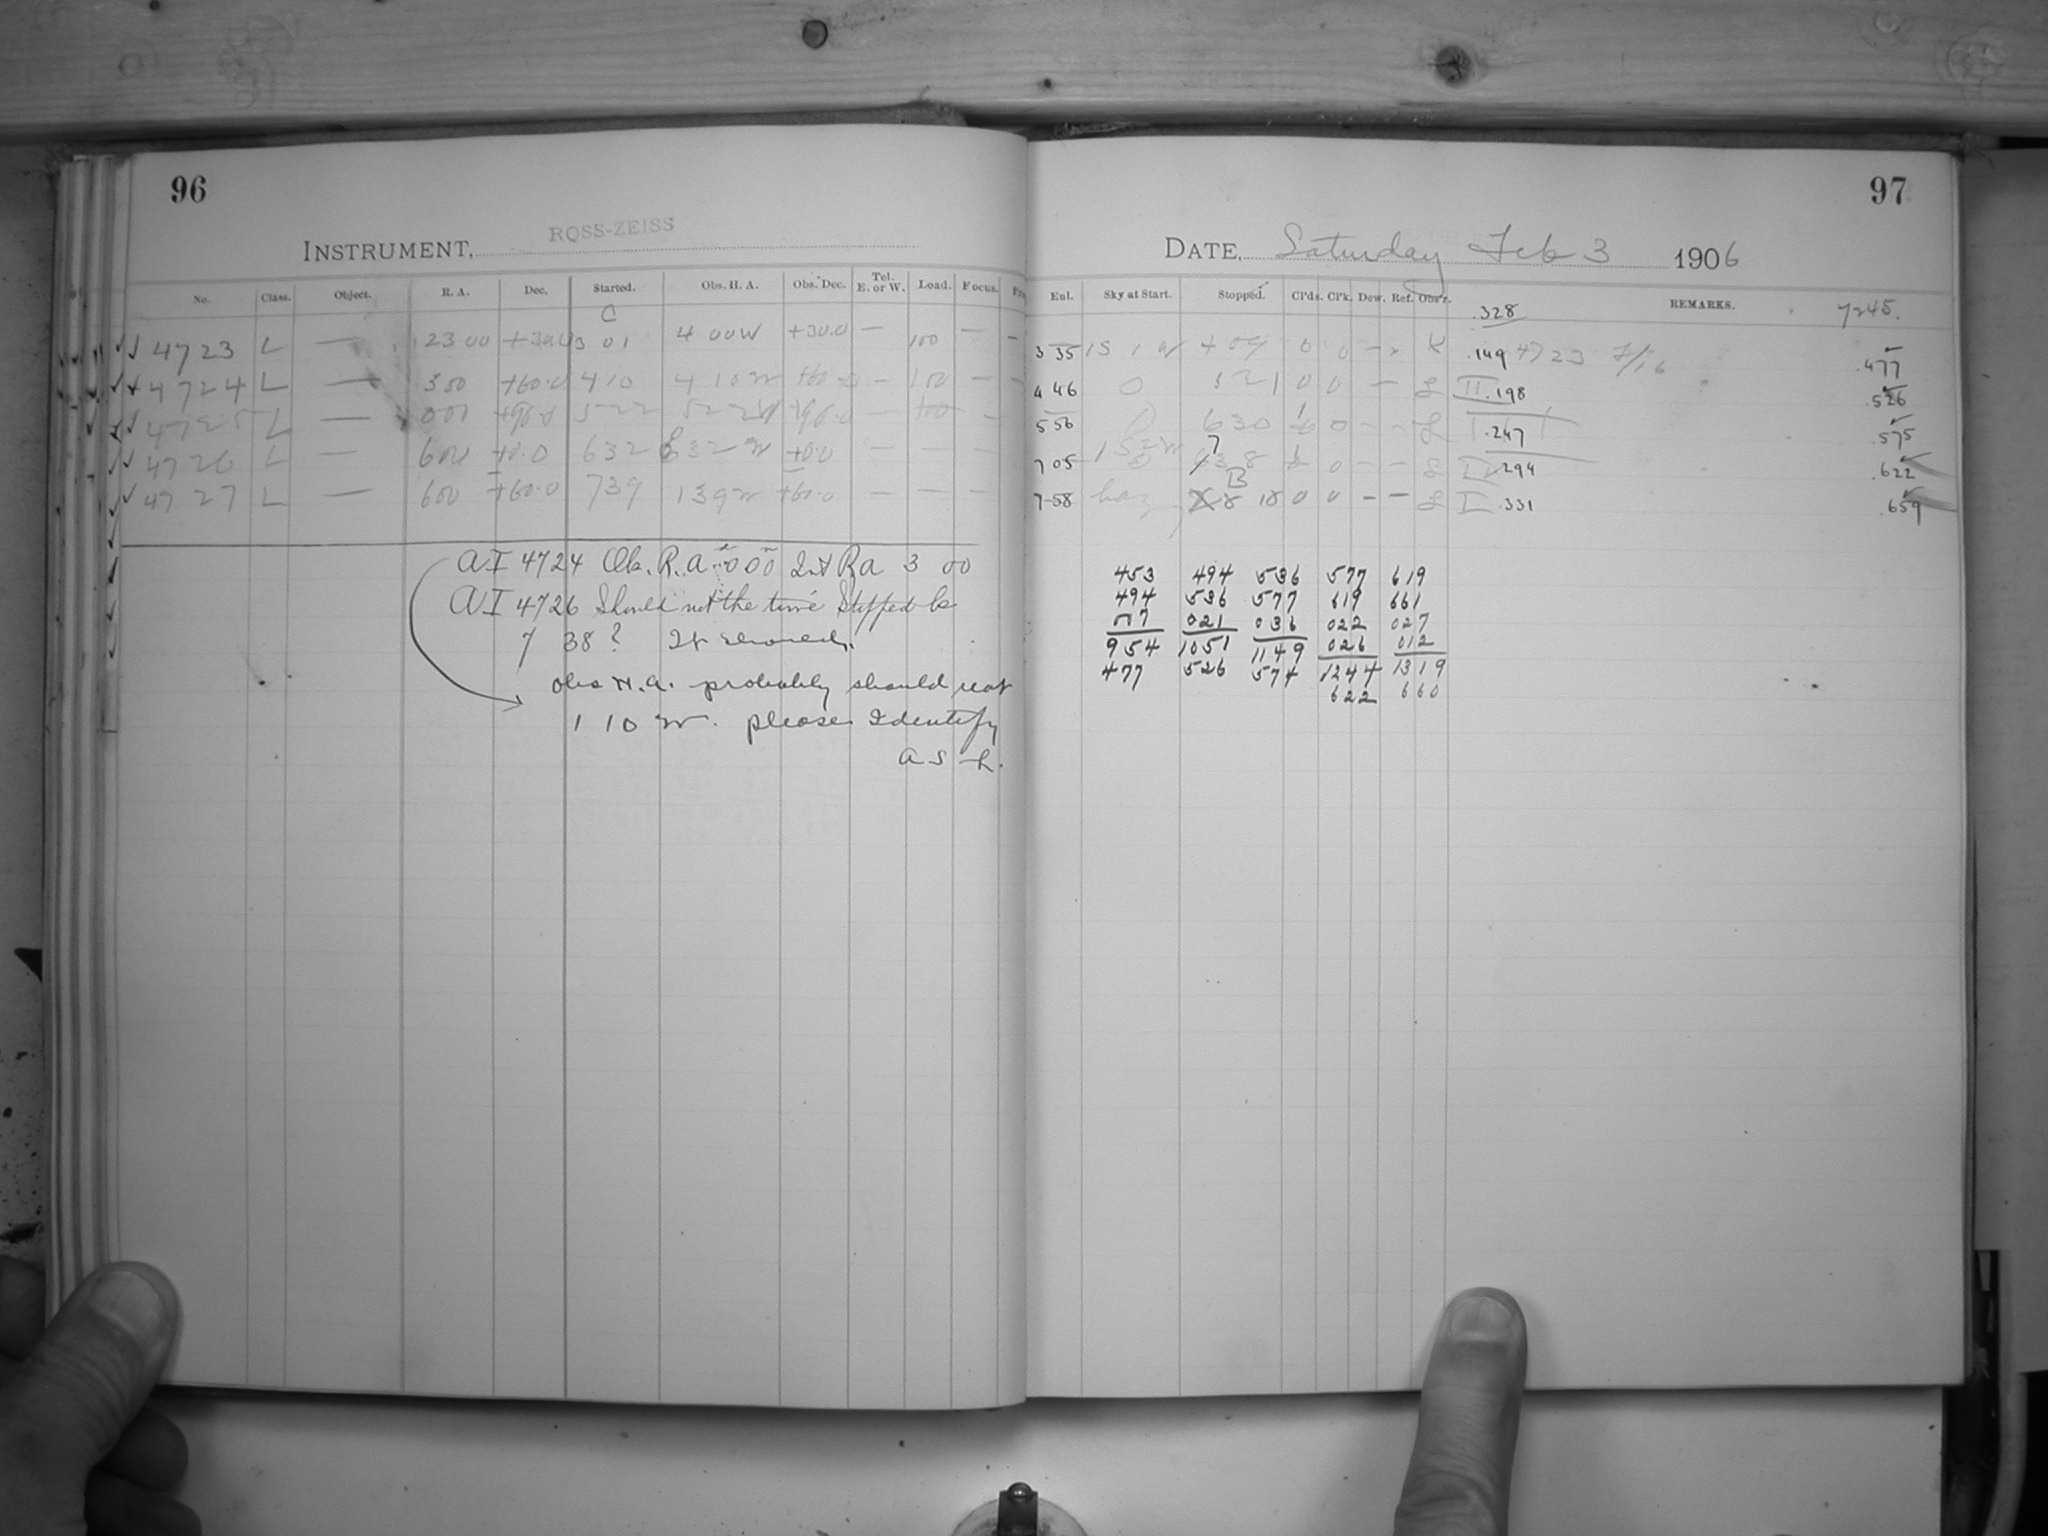 96
INSTRUMENT, ROSS-ZEISS
No. Class. Object. R. A. Dec. Started. Obs. H. A. Obs. Dec. Tel. E. or W. Load. Focus.
C
4723 L — 23 00 +30.0 3 01 4 00 W +30.0 — 100 — —
4724 L — 3 00 +60.0 4 10 4 10 W +60.0 — 100 — —
4725 L — 0 00 +90.0 5 22 5 22 W +90.0 — 100 — —
4726 L — 6 00 +0.0 6 32 0 32 W +0.0 — — —
4727 L — 6 00 +60.0 7 39 1 39 W +60.0 — — —
AI 4724 Ob. R. A. 0 00 Int Ra 3 00
AI 4726 Should not the time Stopped be
7 38? It
obs H.A. probably should read
1 10 W. please Identify
97
DATE, Saturday Feb 3 1906
Eul. Sky at Start. Stopped. Cl'ds. Cl'k. Dew. Ref. Obs'r. REMARKS.
.328 7245.
3 35 0 0 K .149 4723 7/16 .477
4 46 0 5 21 0 0 — L II .198 .526
5 56 0 6 30 0 — — L .247 .575
7 05 0 7 38 0 — — L .294 .622
7 58 8 18 0 0 — — L I .331 .659
453 494 536 577 619
494 536 577 619 661
007 021 036 022 027
954 1051 1149 026 012
477 526 574 1244 1319
622 660